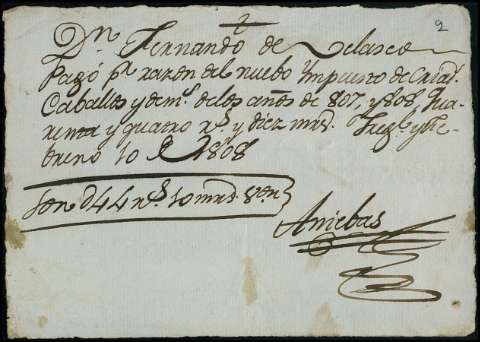 2
Dn. Fernando de Velasco
Pagó pr. razon del nuebo Impuesto de Criads.
Caballos y dems. de los años de 807, y 808, Qua
renta y quatro rs. y diez mrs. y Fe
brero 10 de 1808
Son 44 rs. 10 mrs. Von
Arriebas